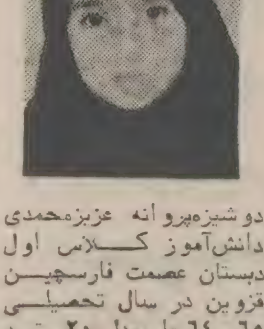 دوشیزه‌پروانه عزیزمحمدی
دانش‌آموز کلاس اول
دبستان عصمت فارسجین
قزوین در سال تحصیلی